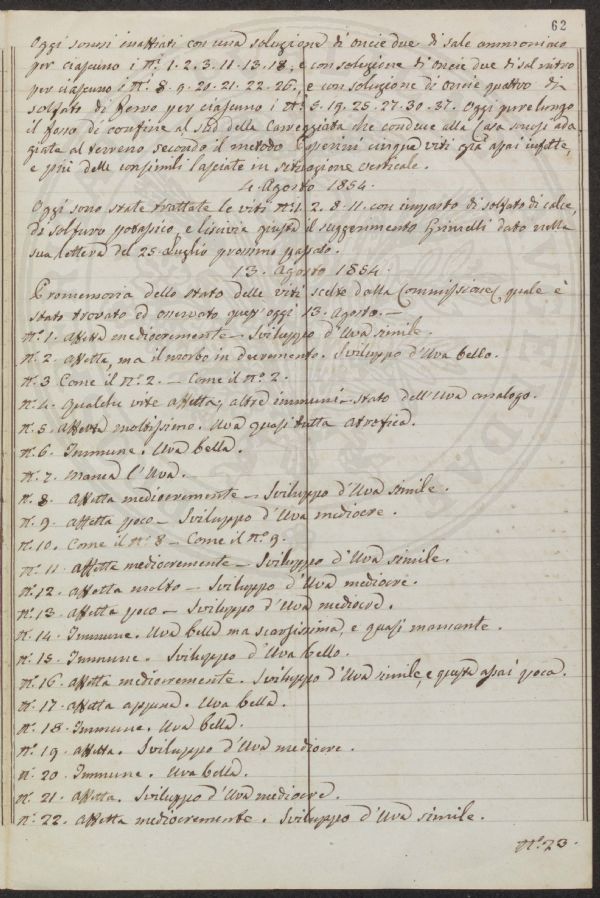 62
Oggi sonosi inaffiati con una soluzione di oncie due di sale ammoniaco
per ciascuno i N.i 1. 2. 3. 11. 13. 18, e con soluzione di oncie due di sal nitro
per ciascuno i N.i 8. 9. 20. 21. 22. 26, e con soluzione di oncie quattro di
solfato di ferro per ciascuno i N.i 5. 19. 25. 27. 30. 37. Oggi pure lungo
il fosso di confine al Sud della Carreggiata che conduce alla Casa sonosi ada-
giate al terreno secondo il metodo cinque viti già assai infette,
e più delle consimili lasciate in situazione verticale.
4. Agosto 1854.
Oggi sono state trattate le viti N.i 1. 2. 8. 11. con impasto di solfato di calce,
di solfuro potassico, e liscivia giusta il suggerimento Grimelli dato nella
sua lettera del 25. Luglio prossimo passato.
13. Agosto 1854.
Promemoria dello stato delle viti scelte dalla Commissione, quale è
stato trovato ed osservato quest'oggi 13. Agosto. —
N.° 1. Affetta mediocremente — Sviluppo d'Uva simile.
N.° 2. Affetta, ma il morbo in decremento. Sviluppo d'Uva bello.
N.° 3 Come il N.° 2. — Come il N.° 2.
N.° 4. Qualche vite affetta, altre immuni — Stato dell'Uva analogo.
N.° 5. Affetta moltissimo. Uva quasi tutta atrofica.
N.° 6. Immune. Uva bella.
N.° 7. Manca l'Uva.
N.° 8. Affetta mediocremente — Sviluppo d'Uva simile.
N.° 9. Affetta poco — Sviluppo d'Uva mediocre.
N.° 10. Come il N.° 8 — Come il N.° 9.
N.° 11. Affetta mediocremente — Sviluppo d'Uva simile.
N.° 12. Affetta molto — Sviluppo d'Uva mediocre.
N.° 13. Affetta poco — Sviluppo d'Uva mediocre.
N.° 14. Immune. Uva bella ma scarsissima, e quasi mancante.
N.° 15. Immune. Sviluppo d'Uva bello.
N.° 16. Affetta mediocremente. Sviluppo d'Uva simile, e questa assai poca.
N.° 17. Affetta appena. Uva bella.
N.° 18. Immune. Uva bella.
N.° 19. Affetta. Sviluppo d'Uva mediocre.
N.° 20. Immune. Uva bella.
N.° 21. Affetta. Sviluppo d'Uva mediocre.
N.° 22. Affetta mediocremente. Sviluppo d'Uva simile.
N.° 23.